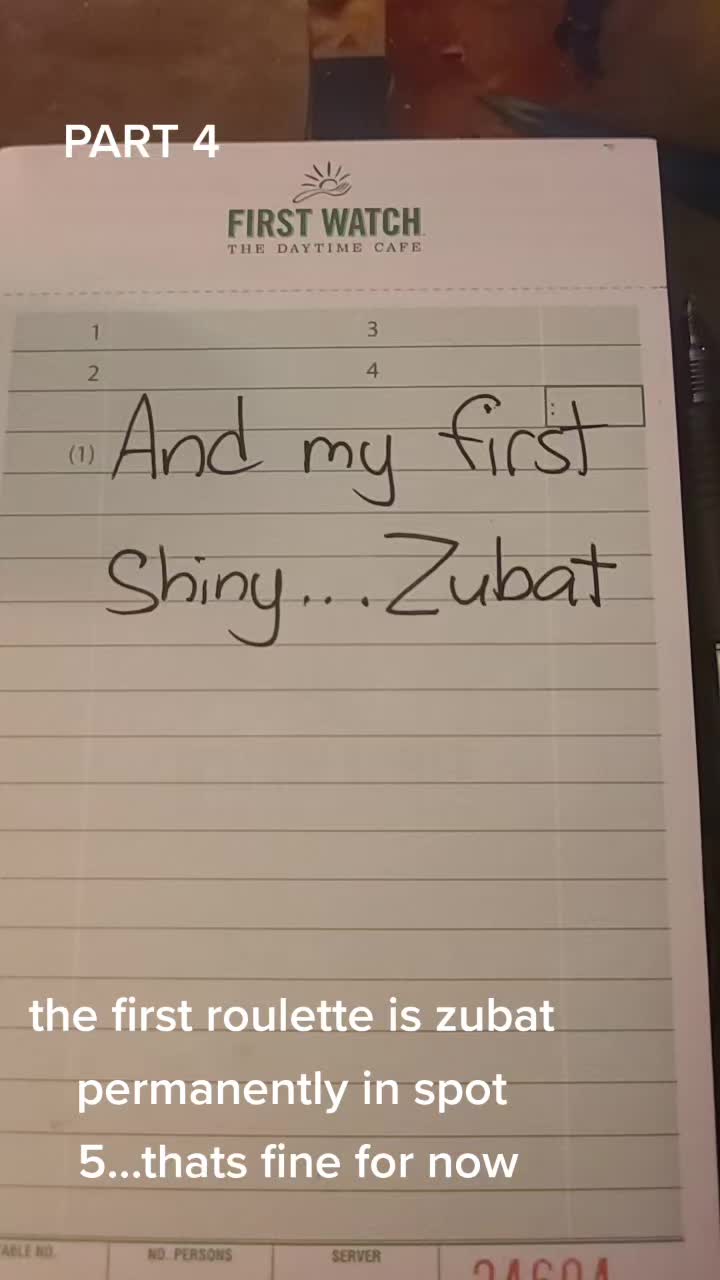 PART 4
FIRST WATCH
THE DAYTIME CAFE
1 3
2 4
:
(1) And my first
Shiny...Zubat
the first roulette is zubat
permanently in spot
5...thats fine for now
NO. PERSONS SERVER